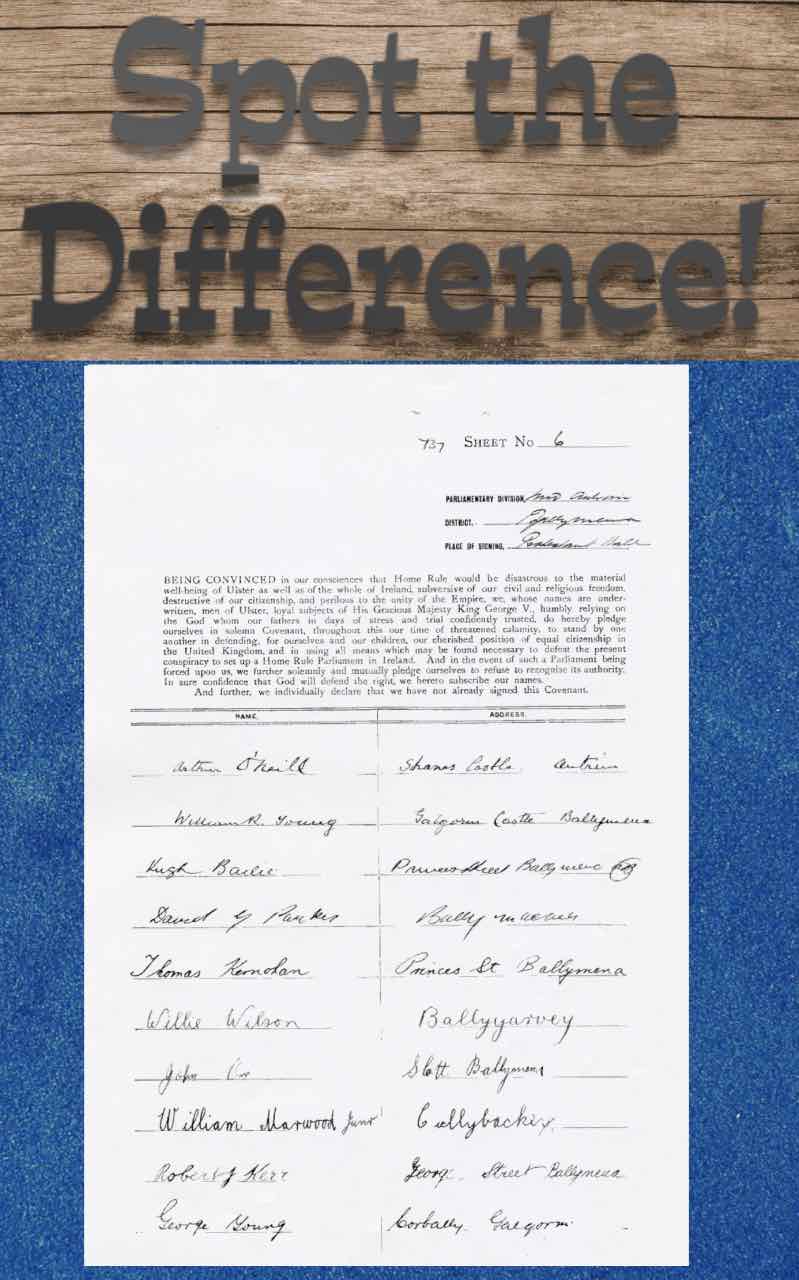 Spot the
Difference!
737 SHEET No 6
PARLIAMENTARY DIVISION, Mid Antrim
DISTRICT, Ballymena
PLACE OF SIGNING, Protestant Hall
BEING CONVINCED in our consciences that Home Rule would be disastrous to the material
well-being of Ulster as well as of the whole of Ireland, subversive of our civil and religious freedom,
destructive of our citizenship, and perilous to the unity of the Empire, we, whose names are under-
written, men of Ulster, loyal subjects of His Gracious Majesty King George V., humbly relying on
the God whom our fathers in days of stress and trial confidently trusted, do hereby pledge
ourselves in solemn Covenant, throughout this our time of threatened calamity, to stand by one
another in defending, for ourselves and our children, our cherished position of equal citizenship in
the United Kingdom, and in using all means which may be found necessary to defeat the present
conspiracy to set up a Home Rule Parliament in Ireland. And in the event of such a Parliament being
forced upon us, we further solemnly and mutually pledge ourselves to refuse to recognise its authority.
In sure confidence that God will defend the right, we hereto subscribe our names.
And further, we individually declare that we have not already signed this Covenant.
NAME. ADDRESS.
Arthur O'Neill Shanes Castle Antrim
William R. Young Galgorm Castle Ballymena
Hugh Bailie Princes Street Ballymena
David Parkes Bally
Thomas Kernohan Princes St Ballymena
Willie Wilson Ballygarvey
John Orr Ballymena
William Marwood Junr Cullybackey
Robert J Kerr George Street Ballymena
George Young Corbally Galgorm